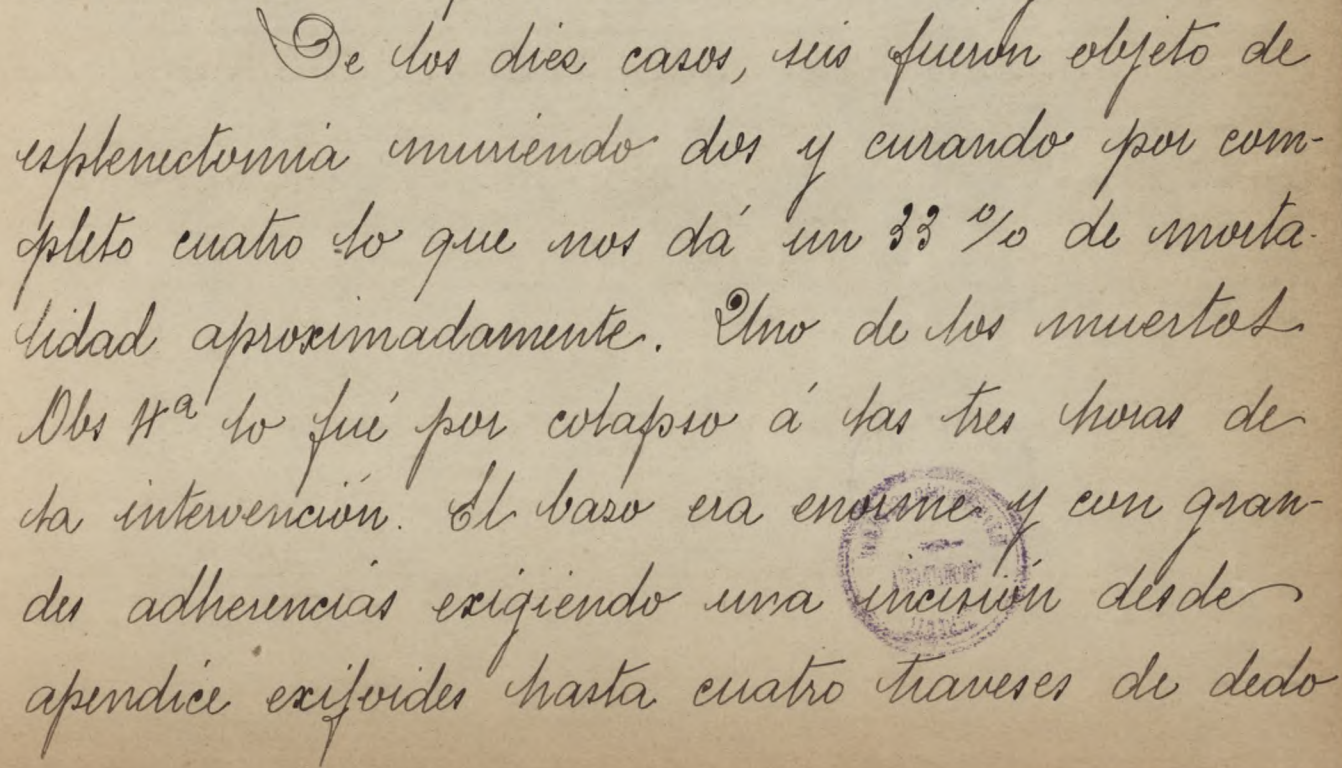 De los diez casos, seis fueron objeto de
esplenectomia muriendo dos y curando por com-
pleto cuatro lo que nos dá un 33 % de morta-
lidad aproximadamente. Uno de los muertos
Obs 4ª lo fué por colapso á las tres horas de
la intervención. El bazo era enorme y con gran-
des adherencias exigiendo una incisión desde
apendice exifoides hasta cuatro traveses de dedo